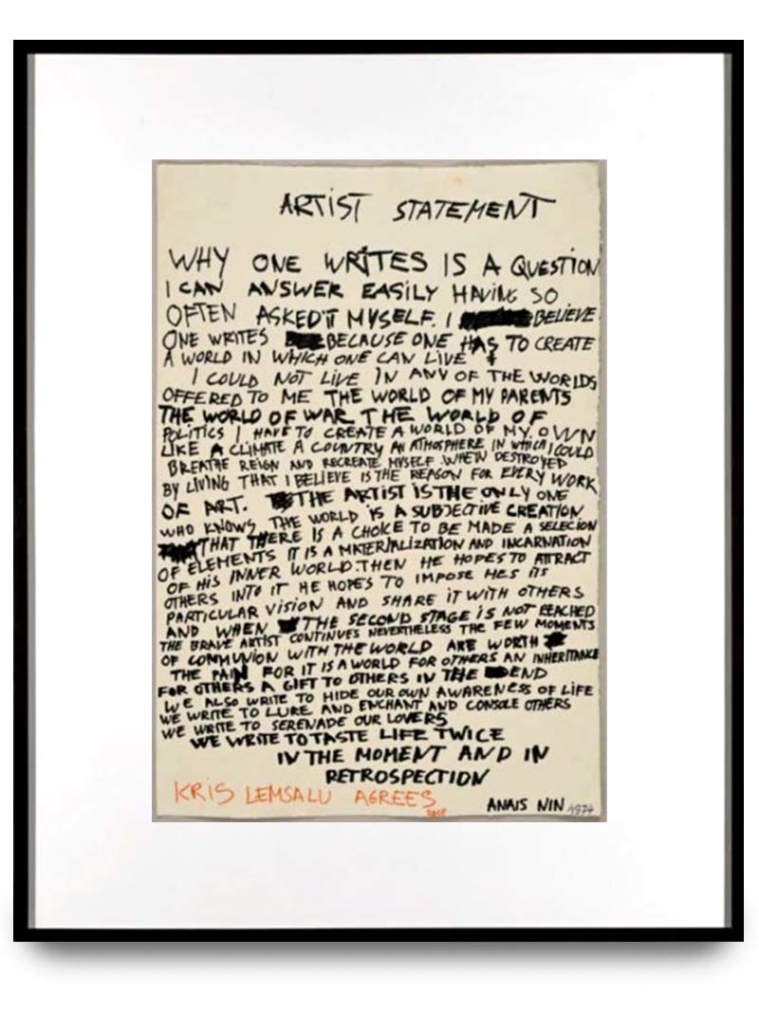 ARTIST STATEMENT
WHY ONE WRITES IS A QUESTION
I CAN ANSWER EASILY HAVING SO
OFTEN ASKED IT MYSELF. I BELIEVE
ONE WRITES BECAUSE ONE HAS TO CREATE
A WORLD IN WHICH ONE CAN LIVE
I COULD NOT LIVE IN ANY OF THE WORLDS
OFFERED TO ME THE WORLD OF MY PARENTS
THE WORLD OF WAR THE WORLD OF
POLITICS I HAVE TO CREATE A WORLD OF MY OWN
LIKE A CLIMATE A COUNTRY AN ATMOSPHERE IN WHICH I COULD
BREATHE REIGN AND RECREATE MYSELF WHEN DESTROYED
BY LIVING THAT I BELIEVE IS THE REASON FOR EVERY WORK
OF ART. THE ARTIST IS THE ONLY ONE
WHO KNOWS THE WORLD IS A SUBJECTIVE CREATION
THAT THERE IS A CHOICE TO BE MADE A SELECION
OF ELEMENTS IT IS A MATERIALIZATION AND INCARNATION
OF HIS INNER WORLD. THEN HE HOPES TO ATTRACT
OTHERS INTO IT HE HOPES TO IMPOSE HES ITS
PARTICULAR VISION AND SHARE IT WITH OTHERS
AND WHEN THE SECOND STAGE IS NOT REACHED
THE BRAVE ARTIST CONTINUES NEVERTHELESS THE FEW MOMENTS
OF COMMUNION WITH THE WORLD ARE WORTH
THE PAIN FOR IT IS A WORLD FOR OTHERS AN INHERITANCE
FOR OTHERS A GIFT TO OTHERS IN THE END
WE ALSO WRITE TO HIDE OUR OWN AWARENESS OF LIFE
WE WRITE TO LURE AND ENCHANT AND CONSOLE OTHERS
WE WRITE TO SERENADE OUR LOVERS
WE WRITE TO TASTE LIFE TWICE
IN THE MOMENT AND IN
RETROSPECTION
KRIS LEMSALU AGREES
ANAIS NIN 1974